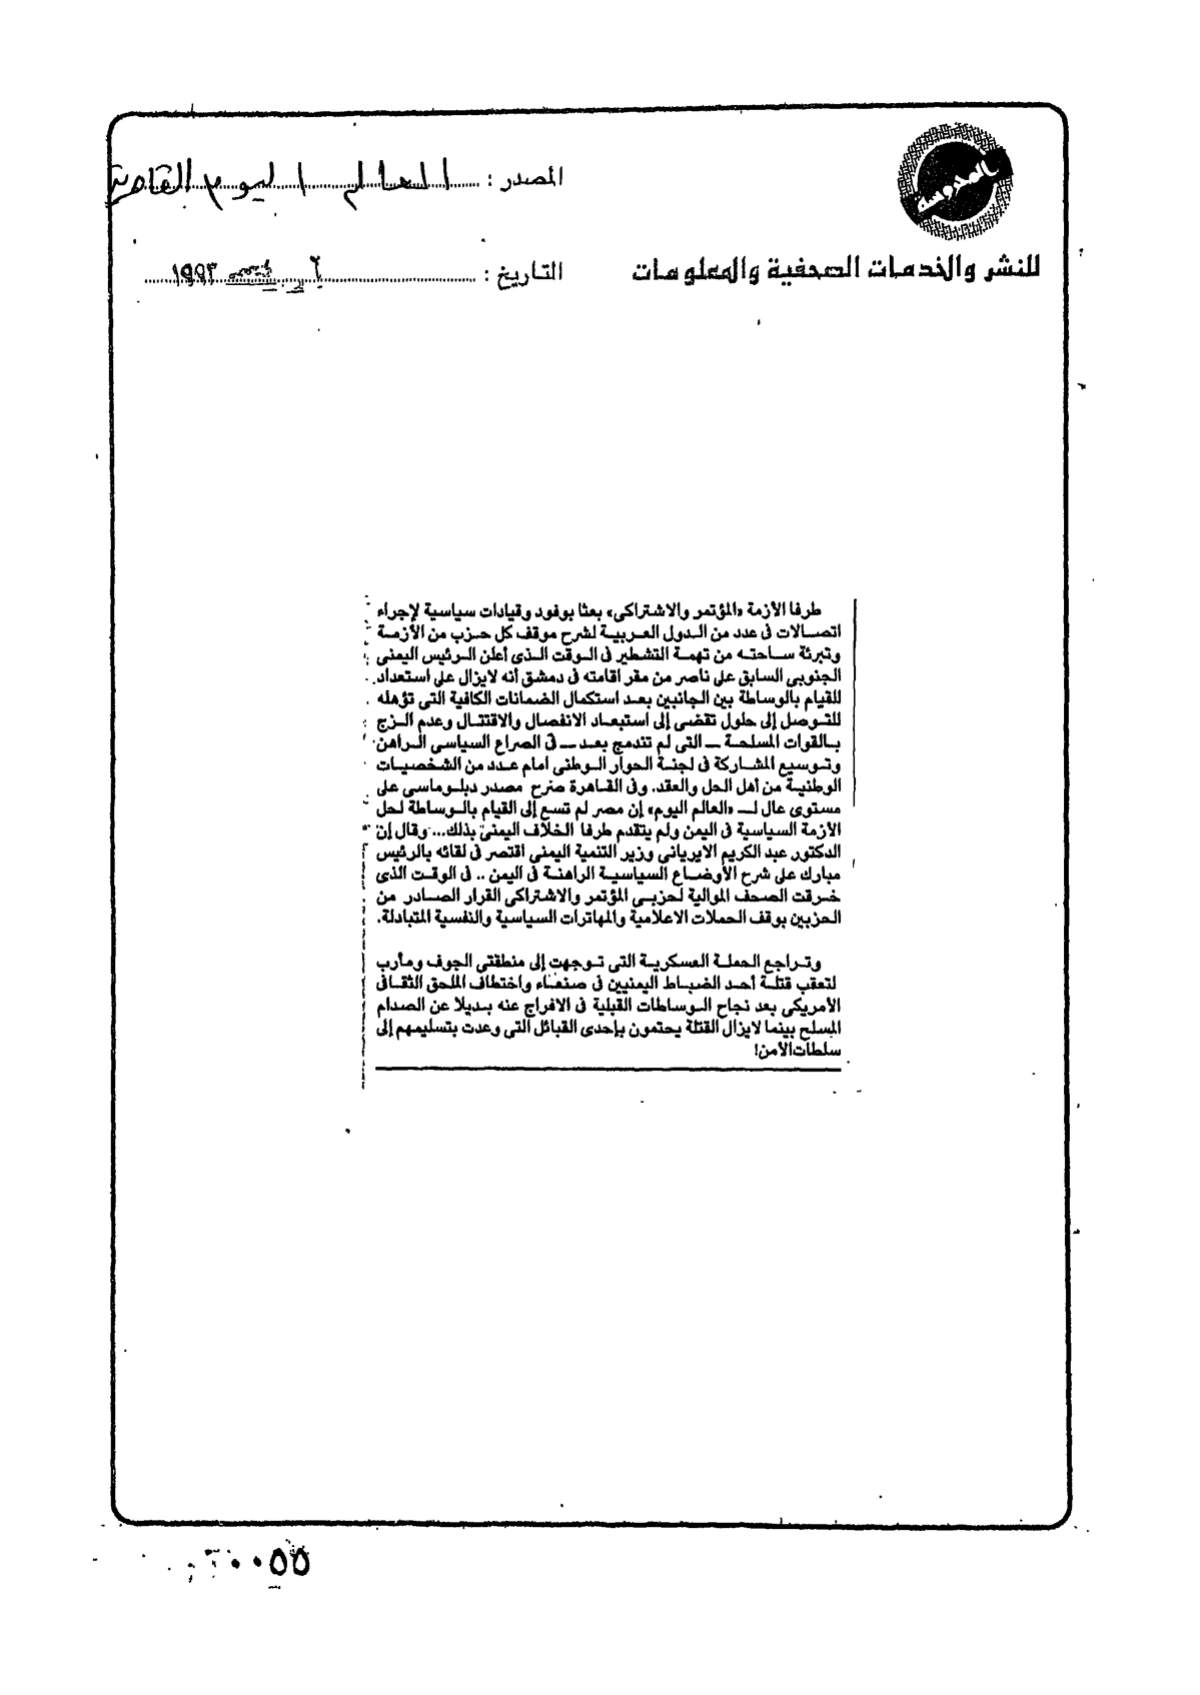 المصدر : العالم اليوم القاهرة
للنشر والخدمات الصحفية والمعلومات
التاريخ : ٦ ديسمبر ١٩٩٣
طرفا الأزمة «المؤتمر والاشتراكى» بعثا بوفود وقيادات سياسية لإجراء
اتصالات فى عدد من الدول العربية لشرح موقف كل حزب من الأزمة
وتبرئة ساحته من تهمة التشطير فى الوقت الذى أعلن الرئيس اليمنى
الجنوبى السابق على ناصر من مقر اقامته فى دمشق أنه لايزال على استعداد
للقيام بالوساطة بين الجانبين بعد استكمال الضمانات الكافية التى تؤهله
للتوصل إلى حلول تقضى إلى استبعاد الانفصال والاقتتال وعدم الزج
بالقوات المسلحة ـ التى لم تندمج بعد ـ فى الصراع السياسى الراهن
وتوسيع المشاركة فى لجنة الحوار الوطنى أمام عدد من الشخصيات
الوطنية من أهل الحل والعقد. وفى القاهرة صرح مصدر دبلوماسى على
مستوى عال لـ «العالم اليوم» إن مصر لم تسع إلى القيام بالوساطة لحل
الأزمة السياسية فى اليمن ولم يتقدم طرفا الخلاف اليمنى بذلك... وقال إن
الدكتور عبد الكريم الايريانى وزير التنمية اليمنى اقتصر فى لقائه بالرئيس
مبارك على شرح الأوضاع السياسية الراهنة فى اليمن .. فى الوقت الذى
خرقت الصحف الموالية لحزبى المؤتمر والاشتراكى القرار الصادر من
الحزبين بوقف الحملات الاعلامية والمهاترات السياسية والنفسية المتبادلة.
وتراجع الحملة العسكرية التى توجهت إلى منطقتى الجوف ومأرب
لتعقب قتلة أحد الضباط اليمنيين فى صنعاء واختطاف الملحق الثقافى
الأمريكى بعد نجاح الوساطات القبلية فى الافراج عنه بديلا عن الصدام
المسلح بينما لايزال القتلة يحتمون بإحدى القبائل التى وعدت بتسليمهم إلى
سلطات الأمن!